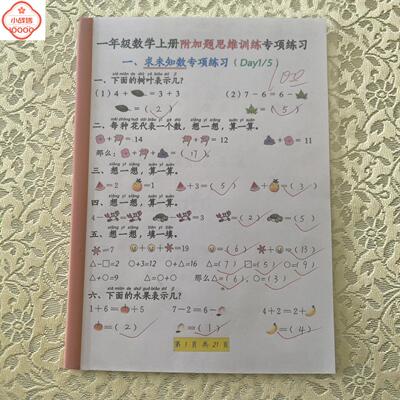 小战塔
0000
一年级数学上册附加题思维训练专项练习
一、求未知数专项练习（Day1/5）
100
一、下面的树叶表示几？
（1）4＋ ＝3＋3 （2）7－6＝6－
＝（2） ＝（5）
二、每种花代表一个数，想一想，算一算。
＋ ＝14 ＋ ＝12 ＋ ＝11
那么： ＋ ＋ ＝（17）。
三、想一想，算一算。
＝2 ＝1 ＋3＝（5） ＋ ＝（3）
四、想一想，算一算。
4－ ＝3 － ＝3 ＝（2） ＝（5）
五、想一想，填一填。
＝7 ＋ ＋ ＝19 ＝（6） ＋ ＝（13）
△－□＝2 ○＋3＝12 ○＋△＝16 △＝（7） □＝（5） ○＝（9）
△＋○＝9 △＝○＋○ 那么△＝（6） ○＝（3）
六、下面的水果表示几？
1＋6＝ ＋5 7－2＝6－ 4＋2＝2＋
＝（2） ＝（1） ＝（4）
第 1 页 共 21 页